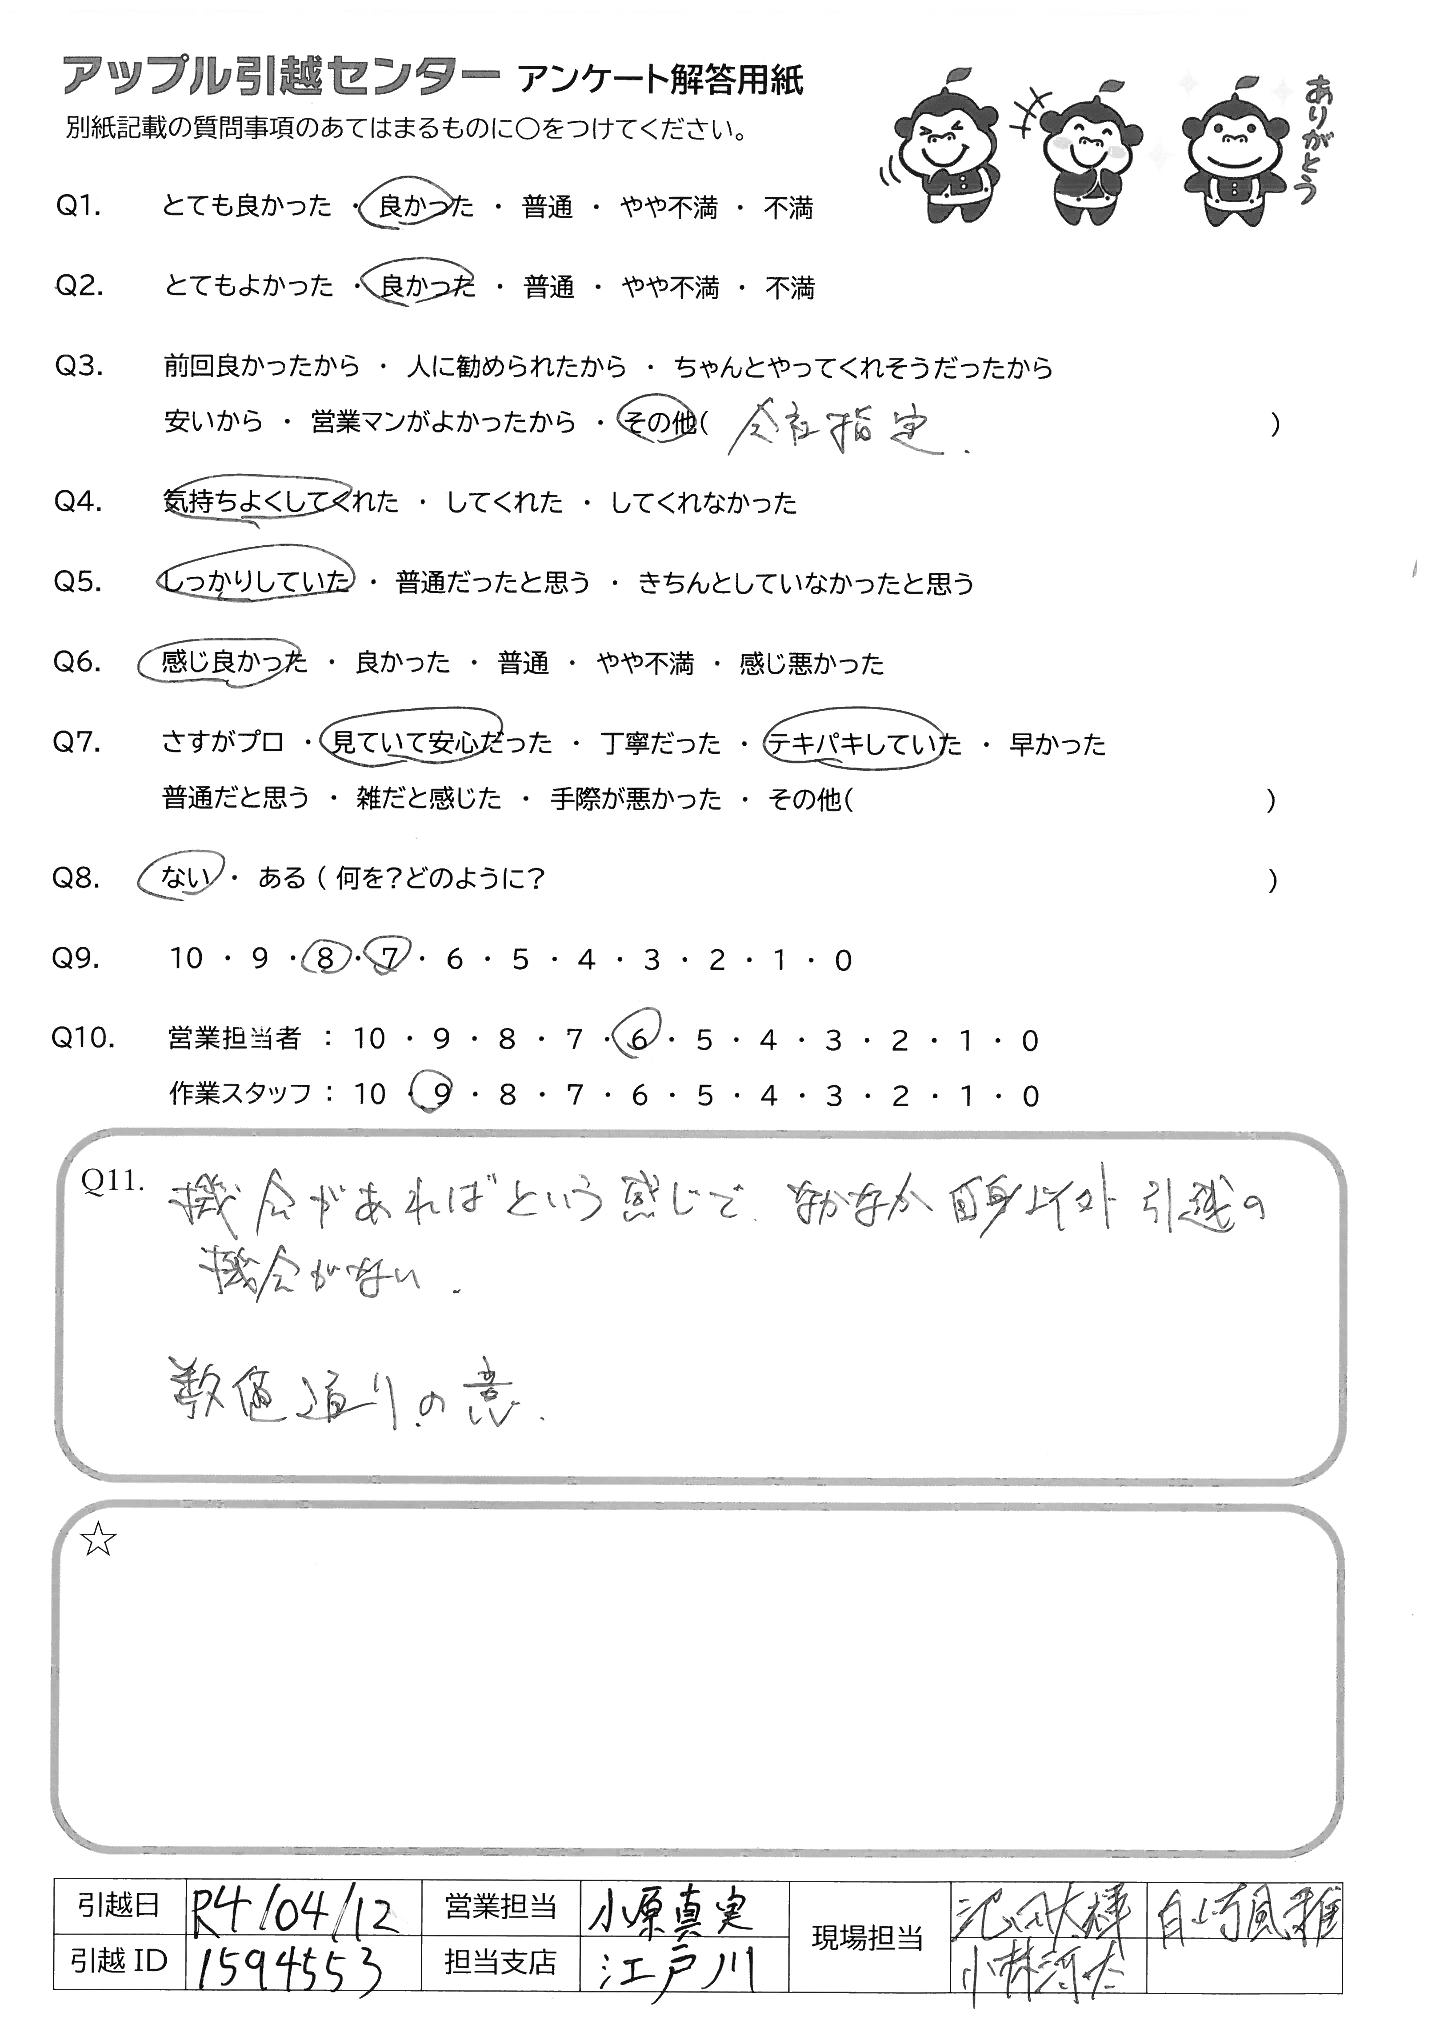 アップル引越センター アンケート解答用紙
別紙記載の質問事項のあてはまるものに〇をつけてください。
ありがとう
Q1. とても良かった ・ 良かった ・ 普通 ・ やや不満 ・ 不満
Q2. とてもよかった ・ 良かった ・ 普通 ・ やや不満 ・ 不満
Q3. 前回良かったから ・ 人に勧められたから ・ ちゃんとやってくれそうだったから
安いから ・ 営業マンがよかったから ・ その他( 会社指定. )
Q4. 気持ちよくしてくれた ・ してくれた ・ してくれなかった
Q5. しっかりしていた ・ 普通だったと思う ・ きちんとしていなかったと思う
Q6. 感じ良かった ・ 良かった ・ 普通 ・ やや不満 ・ 感じ悪かった
Q7. さすがプロ ・ 見ていて安心だった ・ 丁寧だった ・ テキパキしていた ・ 早かった
普通だと思う ・ 雑だと感じた ・ 手際が悪かった ・ その他( )
Q8. ない ・ ある ( 何を?どのように? )
Q9. 10 ・ 9 ・ 8 ・ 7 ・ 6 ・ 5 ・ 4 ・ 3 ・ 2 ・ 1 ・ 0
Q10. 営業担当者 : 10 ・ 9 ・ 8 ・ 7 ・ 6 ・ 5 ・ 4 ・ 3 ・ 2 ・ 1 ・ 0
作業スタッフ : 10 ・ 9 ・ 8 ・ 7 ・ 6 ・ 5 ・ 4 ・ 3 ・ 2 ・ 1 ・ 0
Q11. 機会があればという感じで、なかなか自身以外引越の
機会がない.
数値通りの意.
☆
引越日 R4/04/12 営業担当 小原真実 現場担当 池田大輝
引越ID 1594553 担当支店 江戸川 小林